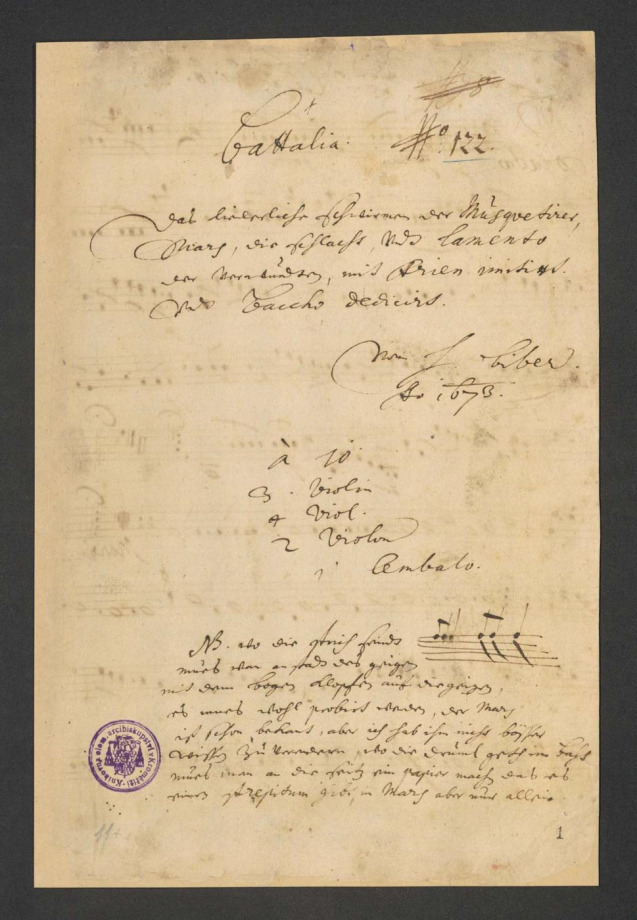 N 8
Battalia.
No. 122.
Das liederliche schwirmen der Musquetirer,
Mars, die schlacht, Undt lamento
der Verwundten, mit Arien imitirt.
Und Baccho dedicirt.
Von H Biber.
Ao 1673.
à 10
3. Violin
4 Viol.
2 Violon
1 Cembalo.
NB. wo die strich seindt
mues man anstadt des geigen
mit dem bogen klopfen auf die geigen,
es mues wohl probirt werden, der Mars
ist schon bekant, aber ich hab ihn nicht bösser
wissen zu verwenden, wo die Druml geth im Baß
mues man an die seiten ein papier machen das es
einen strepitum gibt, in Mars aber nur allein.
1